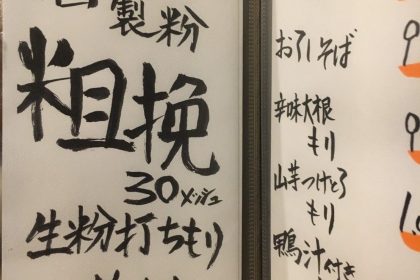 製粉
粗挽
30メッシュ
生粉打ちもり
お引そば
辛味大根
もり
山芋つけとろ
もり
鴨汁付き